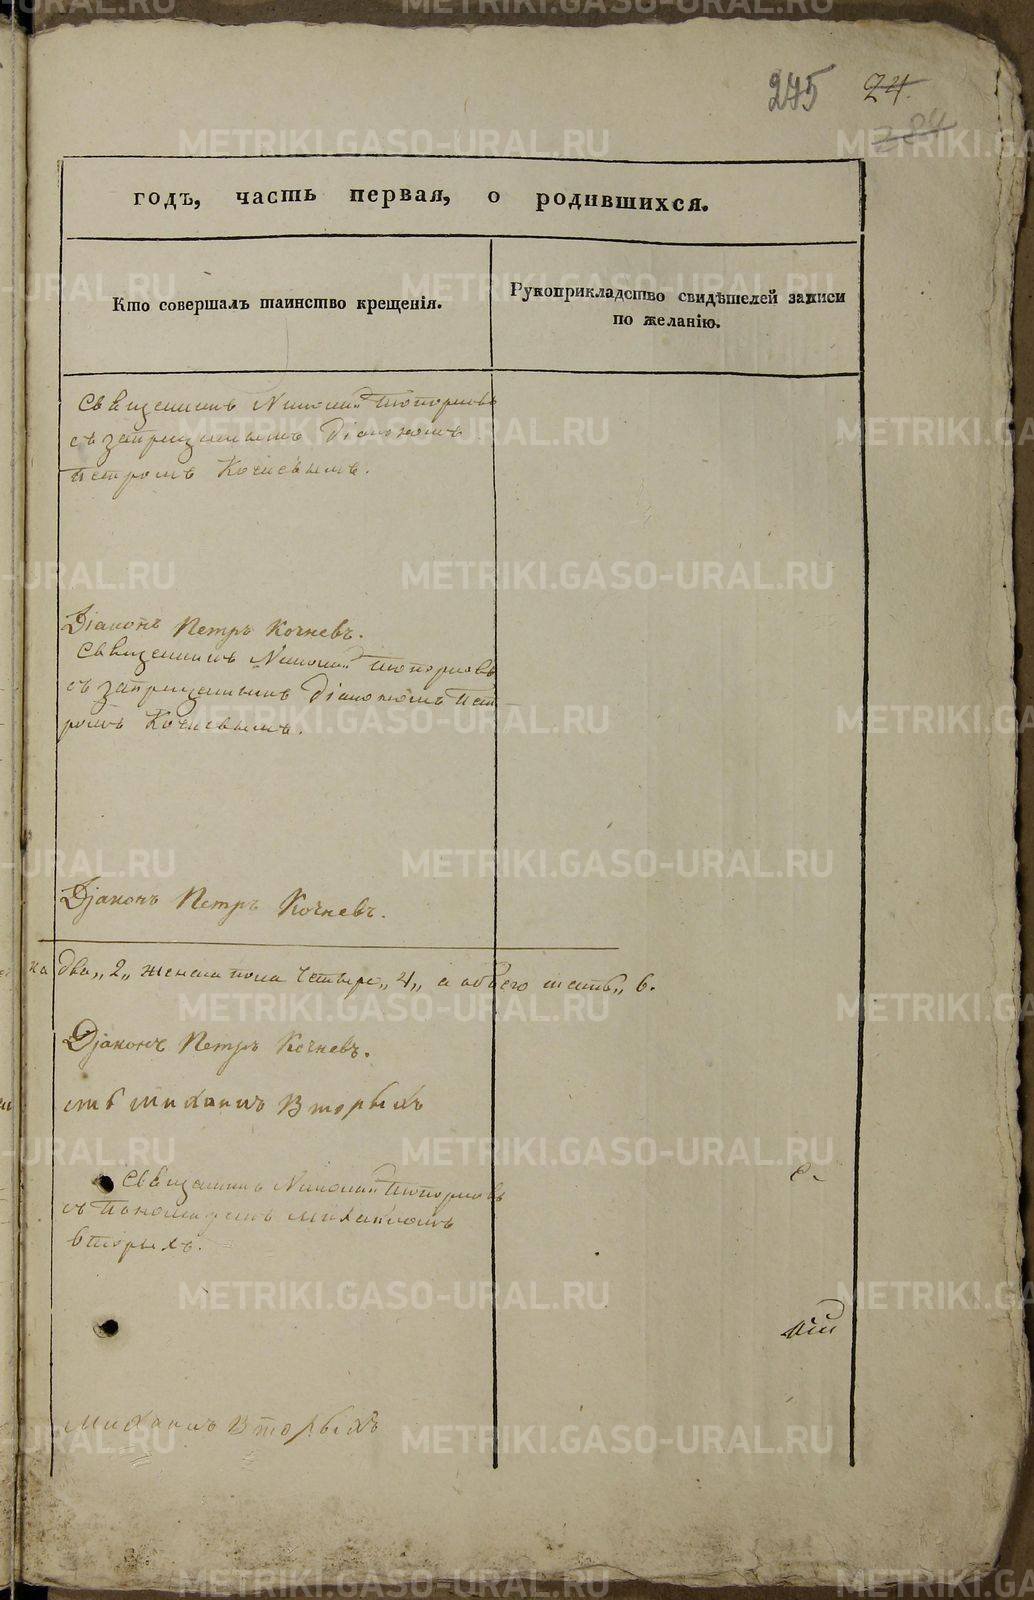 275 24.
284
годъ, часть первая, о родившихся.
Кто совершалъ таинство крещенія.
Рукоприкладство свидѣтелей записи
по желанію.
Священникъ Николай Топорковъ
съ запрещеннымъ Діакономъ
Петромъ Кочневымъ.
Діаконъ Петръ Кочневъ.
Священникъ Николай Топорковъ
съ запрещеннымъ Діакономъ Пет-
ромъ Кочневымъ.
Діаконъ Петръ Кочневъ.
ка два „2„ женска пола четыре „4„ а обоего шесть „ 6.
Діаконъ Петръ Кочневъ.
Михаилъ Вторыхъ
Священникъ Николай Топорковъ
съ Пономаремъ Михаиломъ
Вторыхъ.
Михаилъ Вторыхъ
METRIKI.GASO-URAL.RU